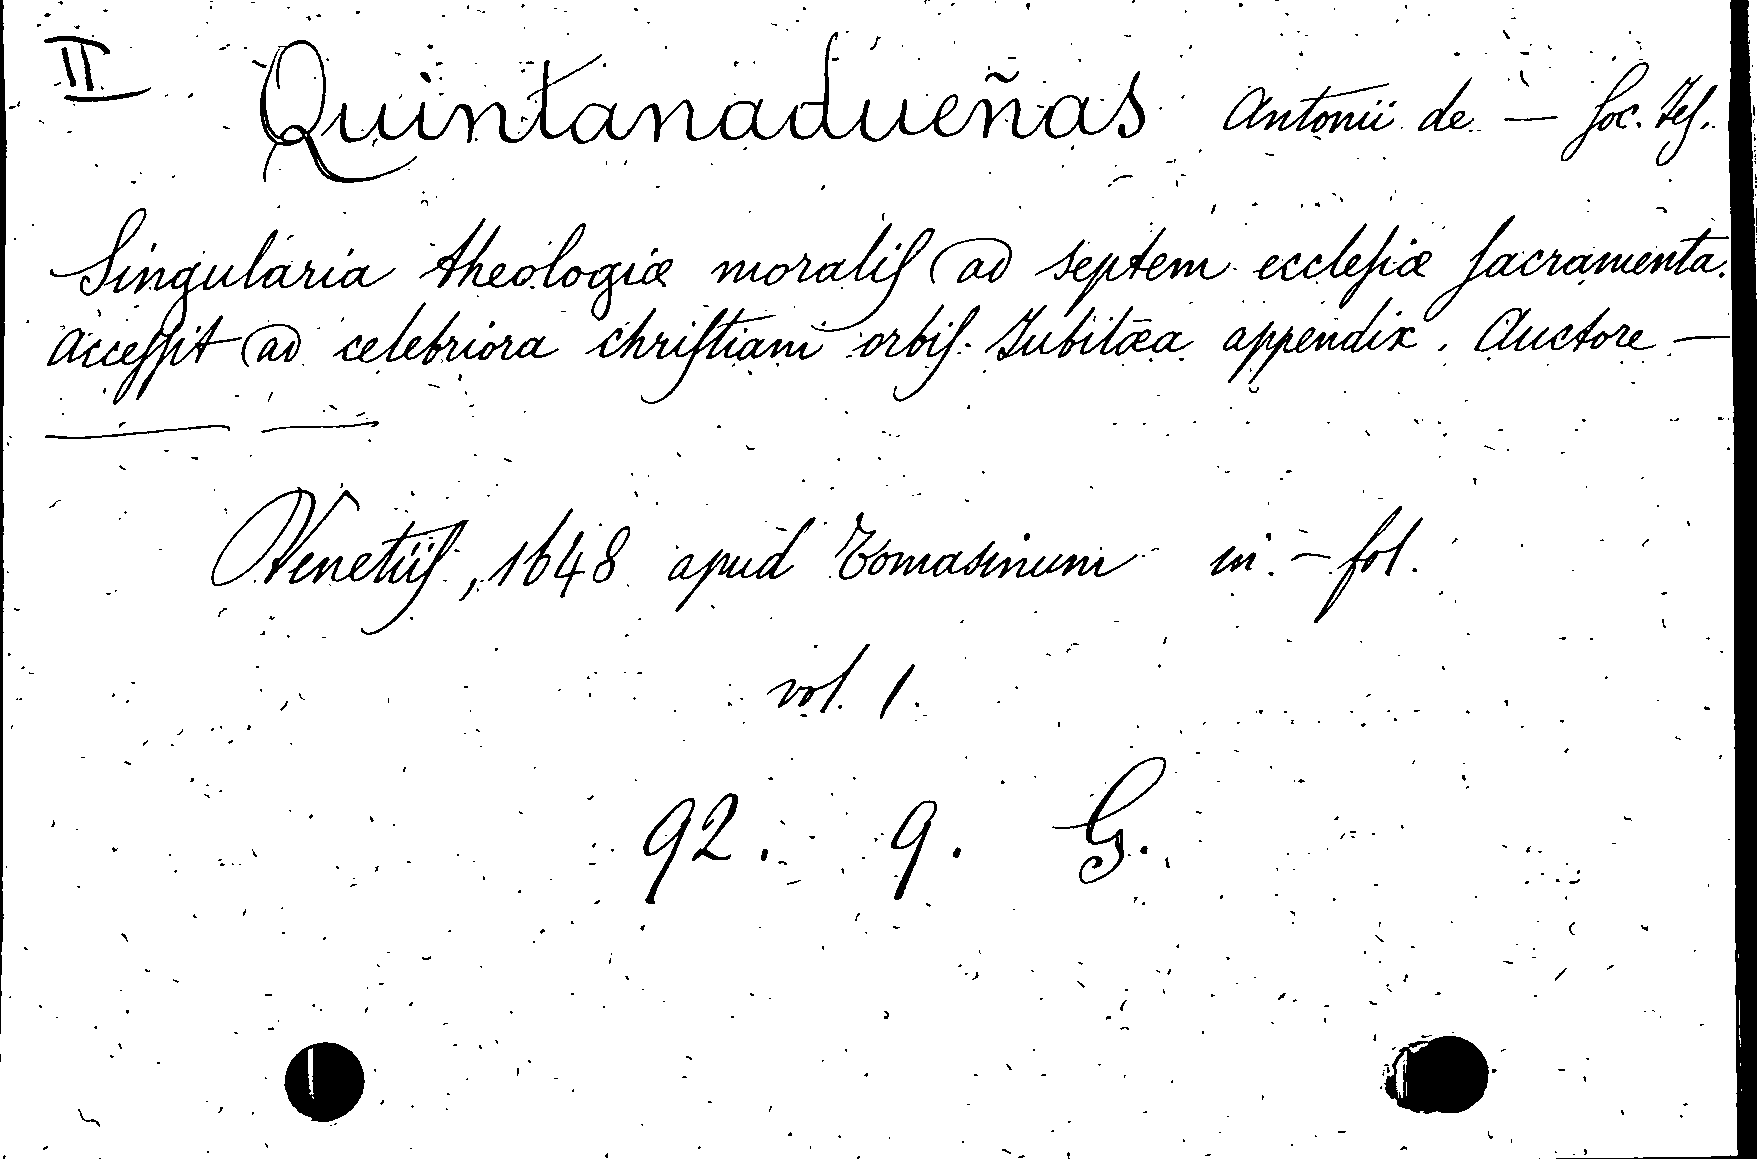 II Quintanadueñas Antonii de — Soc. Jes.
Singularia theologiæ moralis ad septem ecclesiæ sacramenta.
Accessit ad celebriora christiani orbis Jubilæa appendix. Auctore —
— —
Venetiis, 1648 apud Tomasinum in-fol.
vol. 1.
92. 9. G.